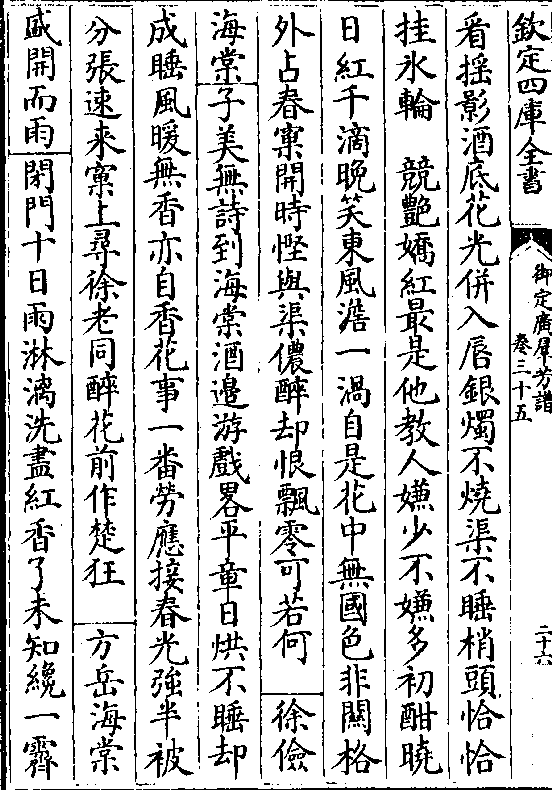 欽定四庫全書
御定廣羣芳譜
卷三十五
二十六
看摇影酒底花光併入唇銀燭不燒渠不睡梢頭恰恰
挂氷輪　競艷嬌紅最是他教人嫌少不嫌多初酣曉
日紅千滴晚笑東風澹一渦自是花中無國色非關格
外占春窠開時慳與渠儂醉却恨飄零可若何　徐儉
海棠子美無詩到海棠酒邉游戲畧平章日烘不睡却
成睡風暖無香亦自香花事一番勞應接春光強半被
分張速来窠上尋徐老同醉花前作楚狂　方岳海棠
盛開而雨閉門十日雨淋漓洗盡紅香了未知纔一霽